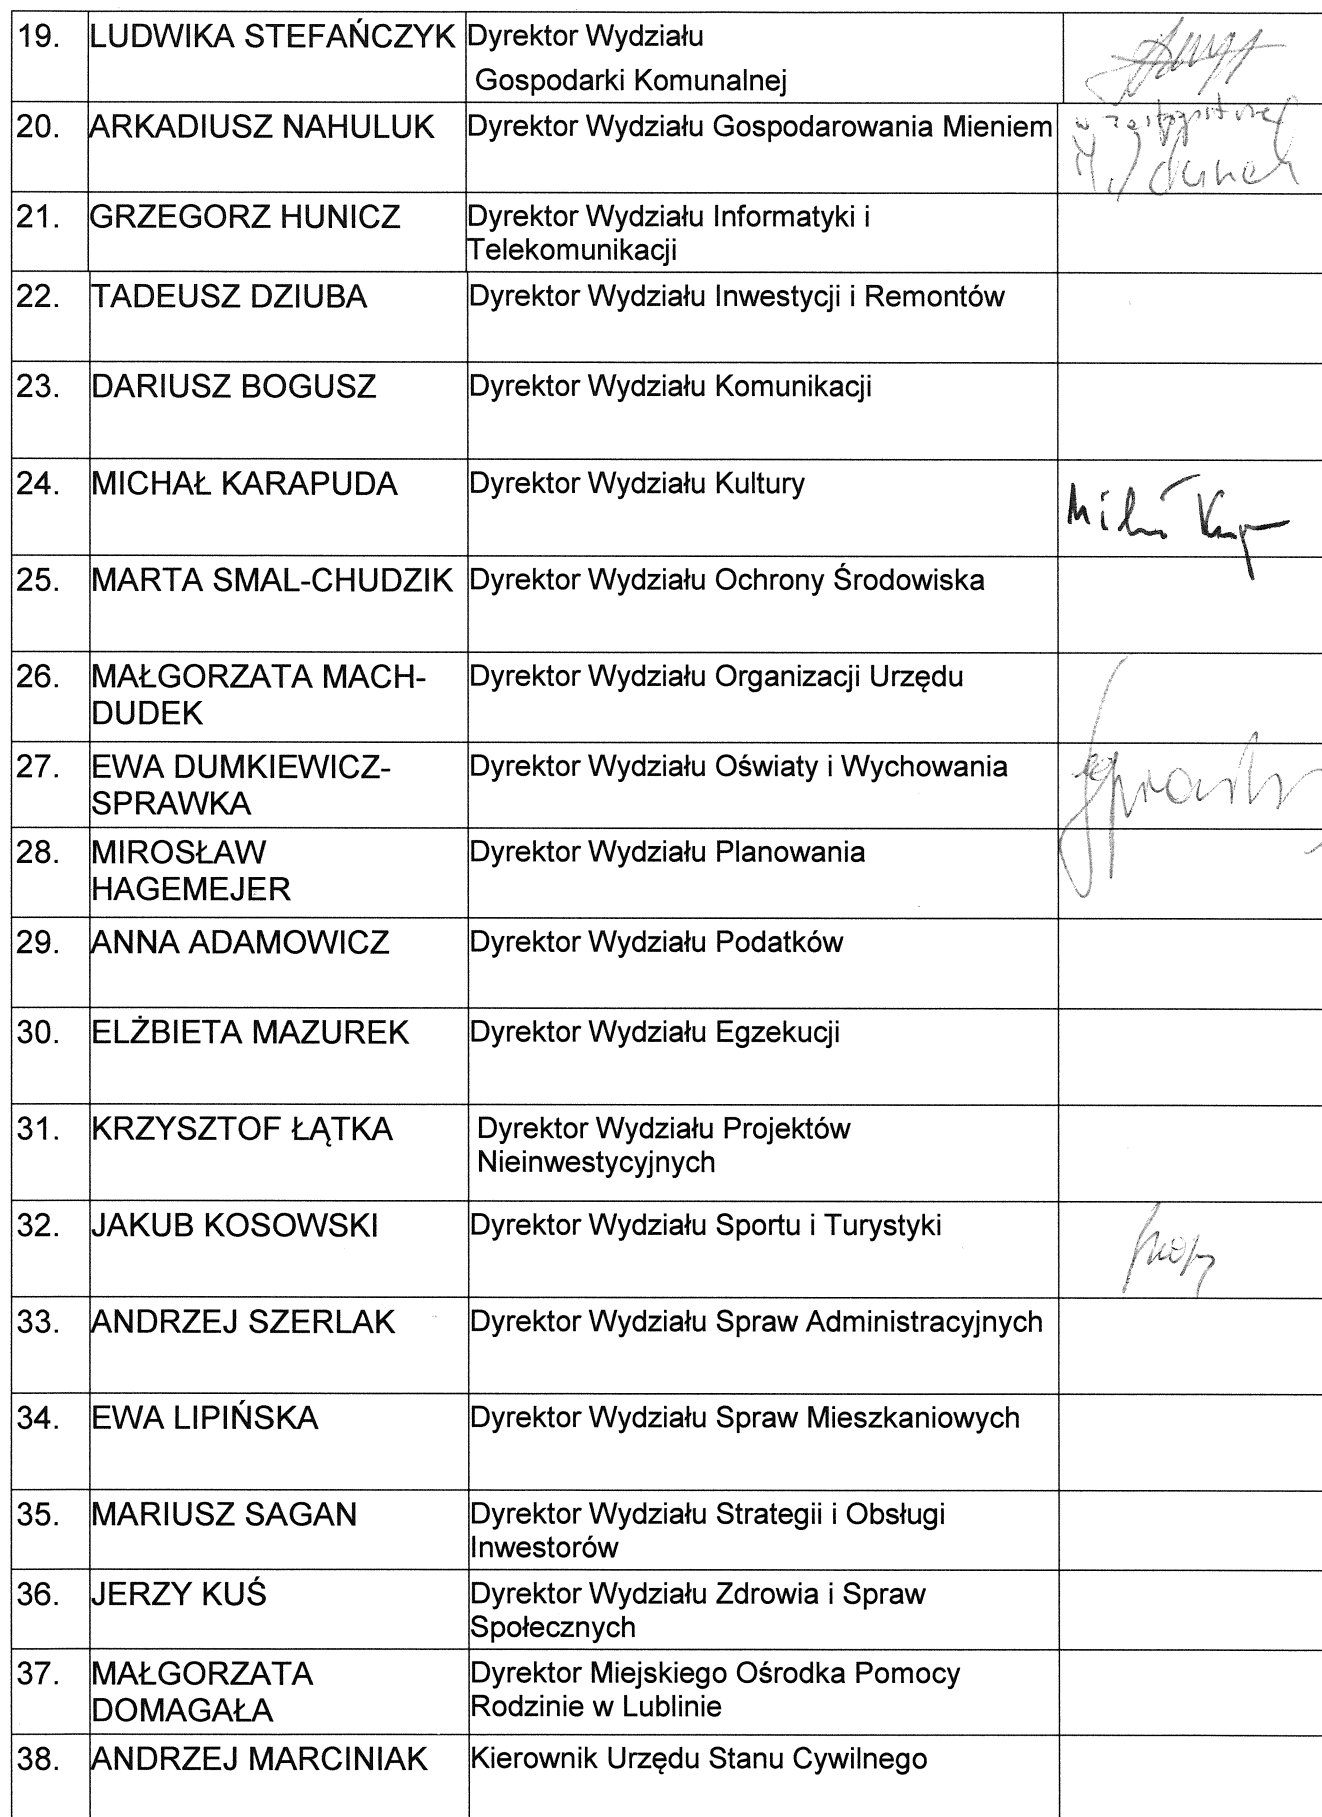 19. LUDWIKA STEFAŃCZYK Dyrektor Wydziału
Gospodarki Komunalnej
20. ARKADIUSZ NAHULUK Dyrektor Wydziału Gospodarowania Mieniem
21. GRZEGORZ HUNICZ Dyrektor Wydziału Informatyki i
Telekomunikacji
22. TADEUSZ DZIUBA Dyrektor Wydziału Inwestycji i Remontów
23. DARIUSZ BOGUSZ Dyrektor Wydziału Komunikacji
24. MICHAŁ KARAPUDA Dyrektor Wydziału Kultury
25. MARTA SMAL-CHUDZIK Dyrektor Wydziału Ochrony Środowiska
26. MAŁGORZATA MACH- Dyrektor Wydziału Organizacji Urzędu
DUDEK
27. EWA DUMKIEWICZ- Dyrektor Wydziału Oświaty i Wychowania
SPRAWKA
28. MIROSŁAW Dyrektor Wydziału Planowania
HAGEMEJER
29. ANNA ADAMOWICZ Dyrektor Wydziału Podatków
30. ELŻBIETA MAZUREK Dyrektor Wydziału Egzekucji
31. KRZYSZTOF ŁĄTKA Dyrektor Wydziału Projektów
Nieinwestycyjnych
32. JAKUB KOSOWSKI Dyrektor Wydziału Sportu i Turystyki
33. ANDRZEJ SZERLAK Dyrektor Wydziału Spraw Administracyjnych
34. EWA LIPIŃSKA Dyrektor Wydziału Spraw Mieszkaniowych
35. MARIUSZ SAGAN Dyrektor Wydziału Strategii i Obsługi
Inwestorów
36. JERZY KUŚ Dyrektor Wydziału Zdrowia i Spraw
Społecznych
37. MAŁGORZATA Dyrektor Miejskiego Ośrodka Pomocy
DOMAGAŁA Rodzinie w Lublinie
38. ANDRZEJ MARCINIAK Kierownik Urzędu Stanu Cywilnego